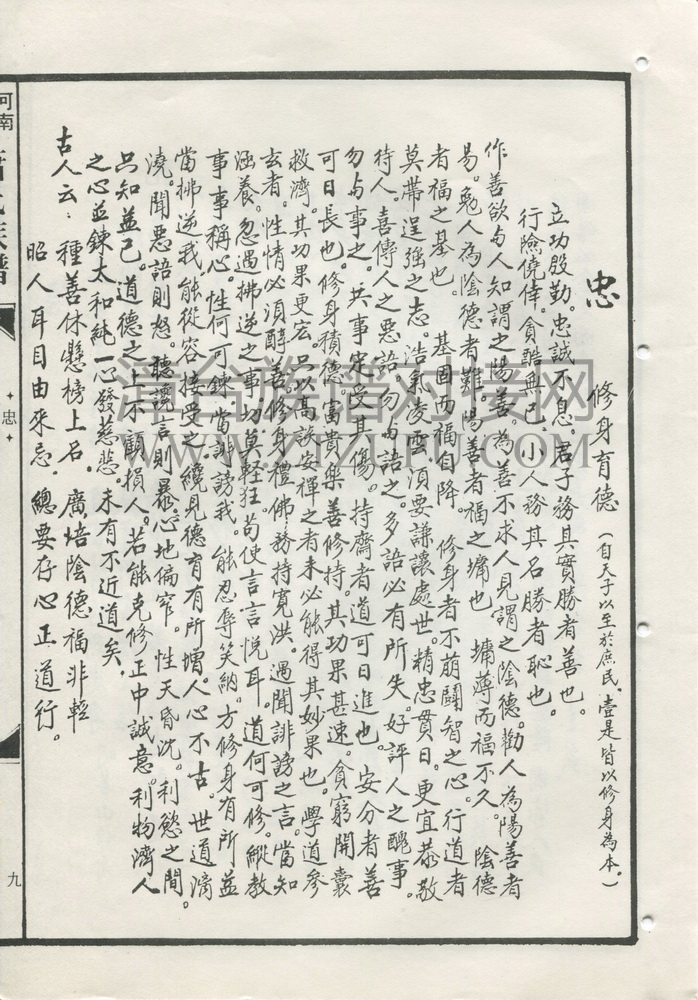 忠
修身育德（自天子以至於庶民，壹是皆以修身為本。）
立功殷勤。忠誠不息。君子務其實勝者善也。
行險僥倖。貪酷無已。小人務其名勝者恥也。
作善欲与人知謂之陽善。為善不求人見謂之陰德。勸人為陽善者
易。勉人為陰德者難。陽善者福之墉也 墉薄而福不久。陰德
者福之基也 基固而福自降。修身者不萠鬪智之心。行道者
莫帶逞强之志。浩氣凌雲，須要謙讓處世。精忠貫日。更宜恭敬
待人。喜傳人之惡語。勿与語之。多語必有所失。好評人之醜事。
勿与事之。共事定受其傷。持齋者道可日進也 安分者善
可日長也。修身積德。富貴樂善修持。其功果甚速。貧窮開囊
救濟。其功果更宏 只以高談安禪之者未必能得其妙果也。學道參
玄者。性情必須醇善。修身禮佛。務持寬洪。遇聞誹謗之言。當知
涵養。忽遇拂逆之事。切莫輕狂。苟使言言悅耳。道何可修。縱教
事事稱心。性何可鍊。當誹謗我。能忍辱笑納。方修身有所益
當拂逆我，能從容接受之，纔見德育有所增。人心不古。世道漓
澆。聞惡語則怒。聽讒言則暴。心地偏窄。性天昏沈。利慾之間。
只知益己。道德之上不顧損人。若能克修正中誠意。利物濟人
之心並鍊太和純一心發慈悲 未有不近道矣。
古人云：種善休懸榜上名 廣培陰德福非輕
昭人耳目由來忌。總要存心正道行。
河南
氏族譜
忠
九
漳台族谱对接网
WWW.ZTZUPU.COM